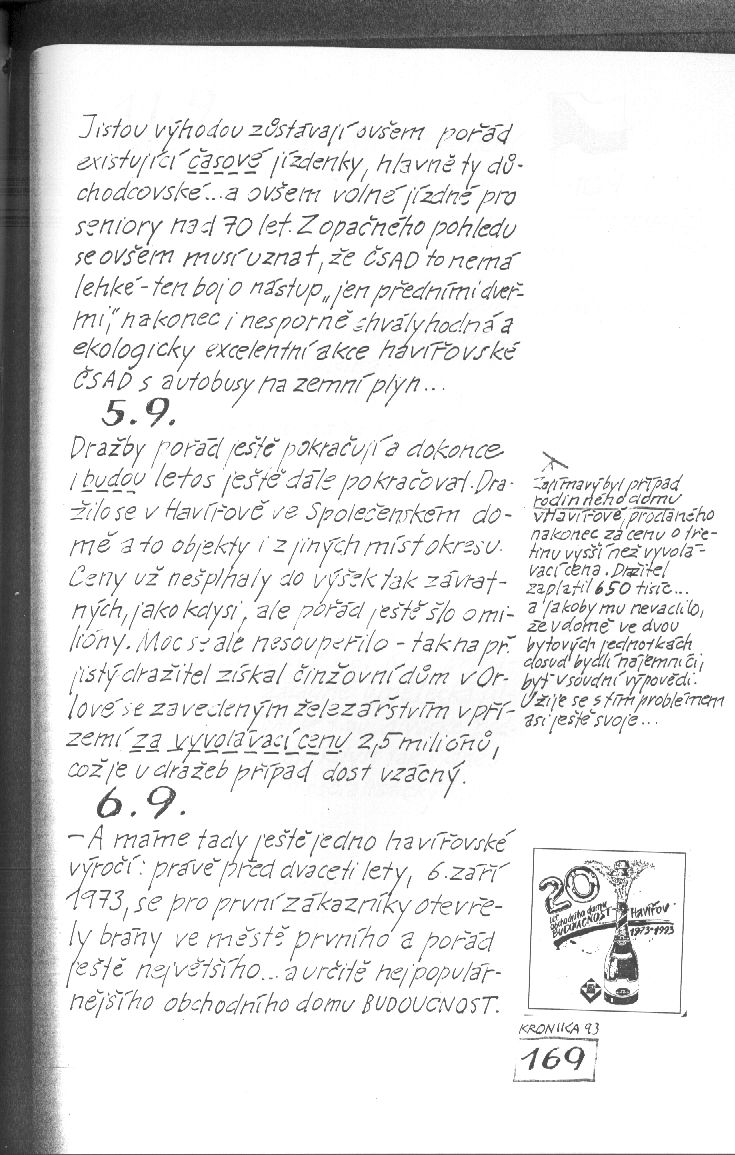 Jistou výhodou zůstávají ovšem pořád
existující časové jízdenky, hlavně ty dů-
chodcovské... a ovšem volné jízdné pro
seniory nad 70 let. Z opačného pohledu
se ovšem musí uznat, že ČSAD to nemá
lehké - ten boj o nástup „jen předními dveř-
mi", nakonec i nesporně chvályhodná a
ekologicky excelentní akce havířovské
ČSAD s autobusy na zemní plyn...
5.9.
Dražby pořád ještě pokračují a dokonce
i budou letos ještě dále pokračovat. Dra-
žilo se v Havířově ve Společenském do-
mě a to objekty i z jiných míst okresu.
Ceny už nešplhaly do výšek tak závrat-
ných, jako kdysi, ale pořád ještě šlo o mi-
lióny. Moc se ale nesoupeřilo - tak na př.
jistý dražitel získal činžovní dům v Or-
lové se zavedeným železářstvím v pří-
zemí za vyvolávací cenu 2,5 miliónů,
což je u dražeb případ dost vzácný.
Zajímavý byl případ
rodinného domu
v Havířově, prodaného
nakonec za cenu o tře-
tinu vyšší než vyvolá-
vací cena. Dražitel
zaplatil 650 tisíc...
a jakoby mu nevadilo,
že v domě ve dvou
bytových jednotkách
dosud bydlí nájemníci,
byť v soudní výpovědi.
Užije se s tím problémem
asi ještě svoje...
6.9.
- A máme tady ještě jedno havířovské
výročí: právě před dvaceti lety, 6. září
1973, se pro první zákazníky otevře-
ly brány ve městě prvního a pořád
ještě největšího... a určitě nejpopulár-
nějšího obchodního domu BUDOUCNOST.
20
let
obchodního domu
BUDOUCNOST - Havířov
1973-1993
KRONIKA 93
169